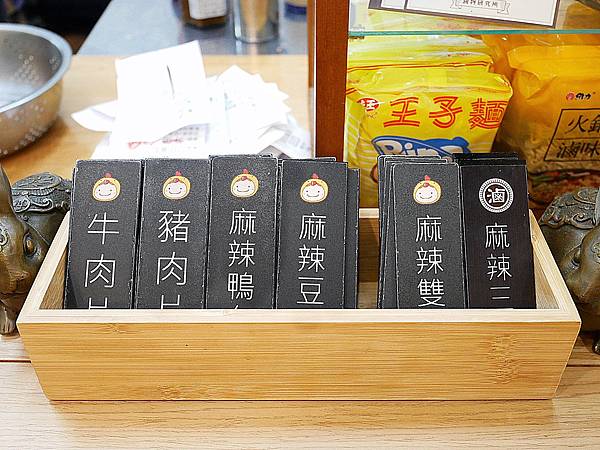 王子麵
火鍋
滷味
牛肉
豬肉
麻辣鴨
麻辣豆
麻辣雙
滷
麻辣三